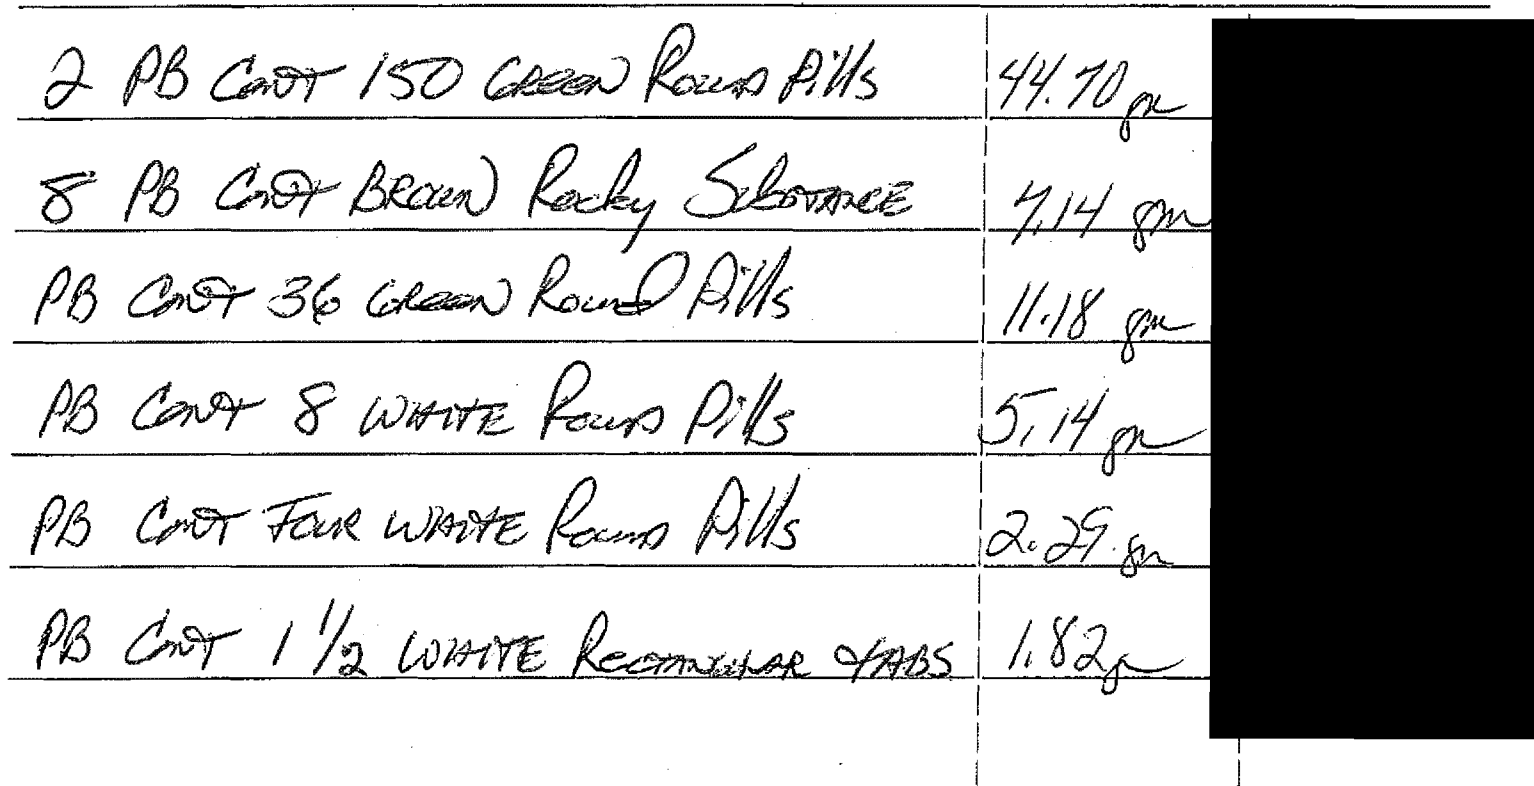 2 PB Cont 150 Green Round Pills 44.70 gm
8 PB Cont Brown Rocky Substance 7.14 gm
PB Cont 36 Green Round Pills 11.18 gm
PB Cont 8 White Round Pills 5.14 gm
PB Cont Four White Round Pills 2.29 gm
PB Cont 1 1/2 White Rectangular tabs 1.82 gm